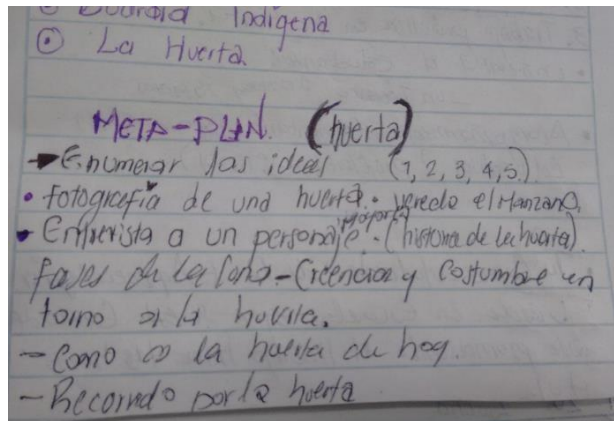 ⊙ Guardia Indígena
⊙ La Huerta
META-PLAN. (huerta)
→ Enumerar las ideas (1, 2, 3, 4, 5.)
• fotografía de una huerta. vereda el Manzano,
• Entrevista a un personaje mayor. (historia de la huerta).
fases de la luna - Creencias y Costumbre en
torno a la huerta.
- Como es la huerta de hoy.
- Recorrido por la huerta